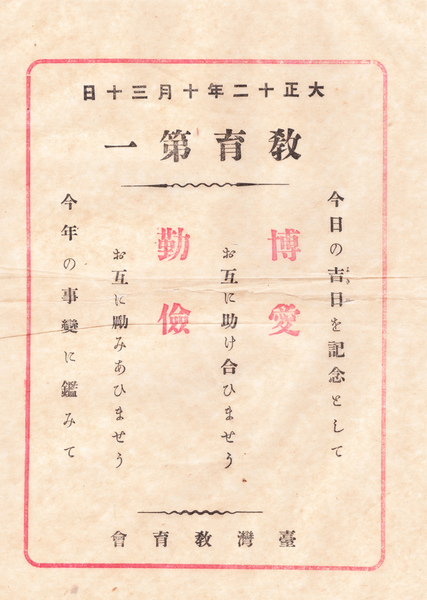 大正十二年十月三十日
教育第一
今日の吉日を記念として
博愛
お互に助け合ひませう
勤儉
お互に勵みあひませう
今年の事變に鑑みて
臺灣教育會